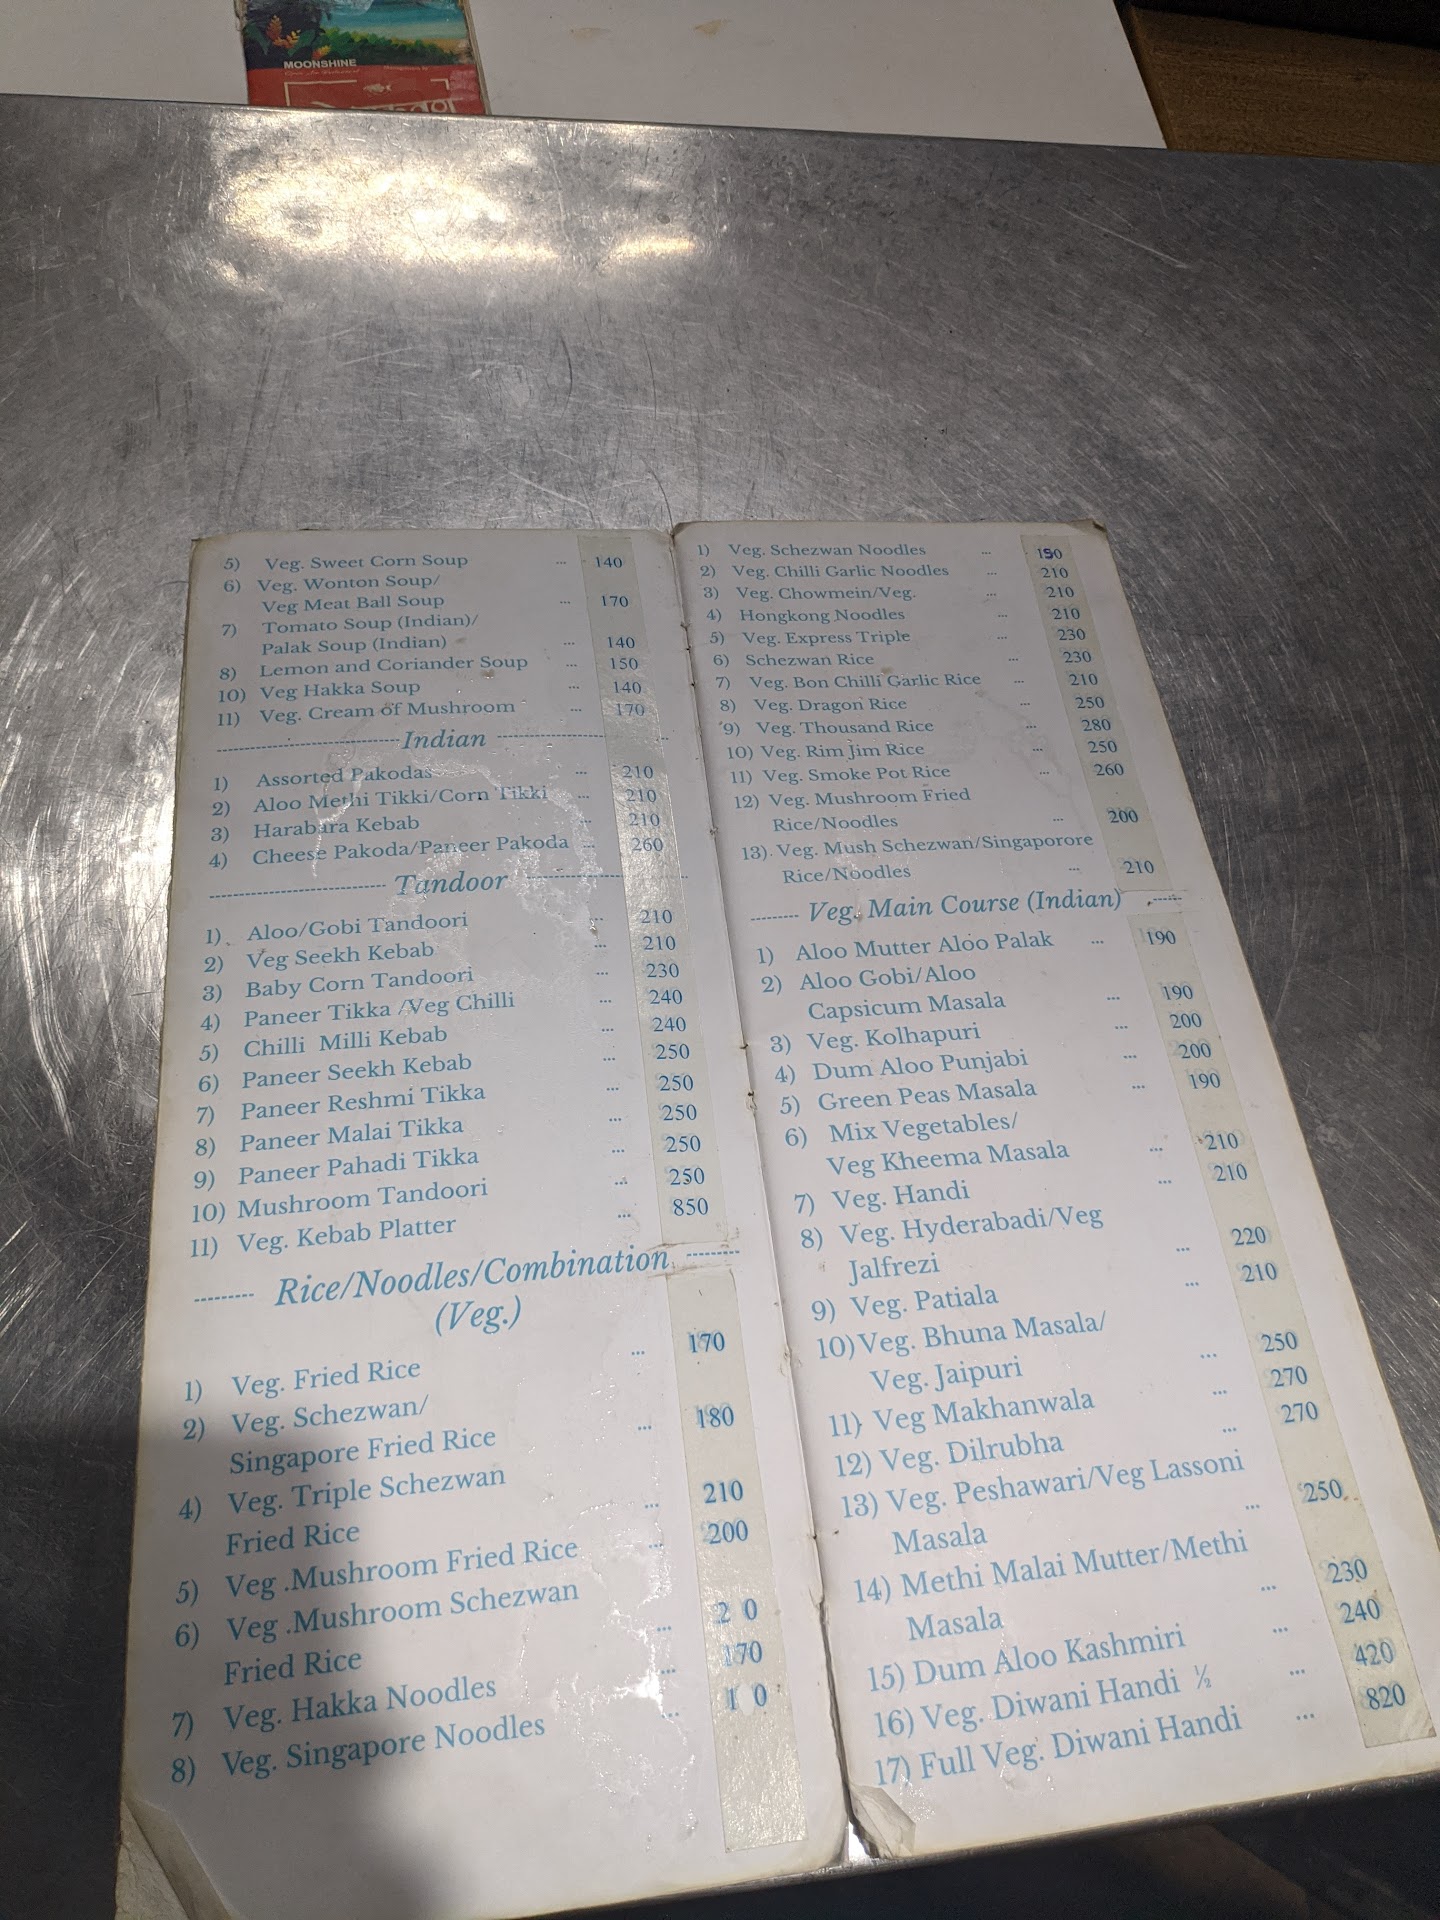 MOONSHINE
5) Veg. Sweet Corn Soup ... 140
6) Veg. Wonton Soup/
Veg Meat Ball Soup ... 170
7) Tomato Soup (Indian)/
Palak Soup (Indian) ... 140
8) Lemon and Coriander Soup ... 150
10) Veg Hakka Soup ... 140
11) Veg. Cream of Mushroom ... 170
Indian
1) Assorted Pakodas ... 210
2) Aloo Methi Tikki/Corn Tikki ... 210
3) Harabara Kebab ... 210
4) Cheese Pakoda/Paneer Pakoda ... 260
Tandoor
1) Aloo/Gobi Tandoori ... 210
2) Veg Seekh Kebab ... 210
3) Baby Corn Tandoori ... 230
4) Paneer Tikka /Veg Chilli ... 240
5) Chilli Milli Kebab ... 240
6) Paneer Seekh Kebab ... 250
7) Paneer Reshmi Tikka ... 250
8) Paneer Malai Tikka ... 250
9) Paneer Pahadi Tikka ... 250
10) Mushroom Tandoori ... 250
11) Veg. Kebab Platter ... 850
Rice/Noodles/Combination
(Veg.)
1) Veg. Fried Rice ... 170
2) Veg. Schezwan/
Singapore Fried Rice ... 180
4) Veg. Triple Schezwan
Fried Rice ... 210
5) Veg .Mushroom Fried Rice ... 200
6) Veg .Mushroom Schezwan
Fried Rice ... 2 0
7) Veg. Hakka Noodles ... 170
8) Veg. Singapore Noodles ... 1 0
1) Veg. Schezwan Noodles ... 190
2) Veg. Chilli Garlic Noodles ... 210
3) Veg. Chowmein/Veg. ... 210
4) Hongkong Noodles ... 210
5) Veg. Express Triple ... 230
6) Schezwan Rice ... 230
7) Veg. Bon Chilli Garlic Rice ... 210
8) Veg. Dragon Rice ... 250
9) Veg. Thousand Rice ... 280
10) Veg. Rim Jim Rice ... 250
11) Veg. Smoke Pot Rice ... 260
12) Veg. Mushroom Fried
Rice/Noodles ... 200
13). Veg. Mush Schezwan/Singaporore
Rice/Noodles ... 210
Veg. Main Course (Indian)
1) Aloo Mutter Aloo Palak ... 190
2) Aloo Gobi/Aloo
Capsicum Masala ... 190
3) Veg. Kolhapuri ... 200
4) Dum Aloo Punjabi ... 200
5) Green Peas Masala ... 190
6) Mix Vegetables/
Veg Kheema Masala ... 210
7) Veg. Handi ... 210
8) Veg. Hyderabadi/Veg
Jalfrezi ... 220
9) Veg. Patiala ... 210
10) Veg. Bhuna Masala/
Veg. Jaipuri ... 250
11) Veg Makhanwala ... 270
12) Veg. Dilrubha ... 270
13) Veg. Peshawari/Veg Lassoni
Masala ... 250
14) Methi Malai Mutter/Methi
Masala ... 230
15) Dum Aloo Kashmiri ... 240
16) Veg. Diwani Handi ½ ... 420
17) Full Veg. Diwani Handi ... 820